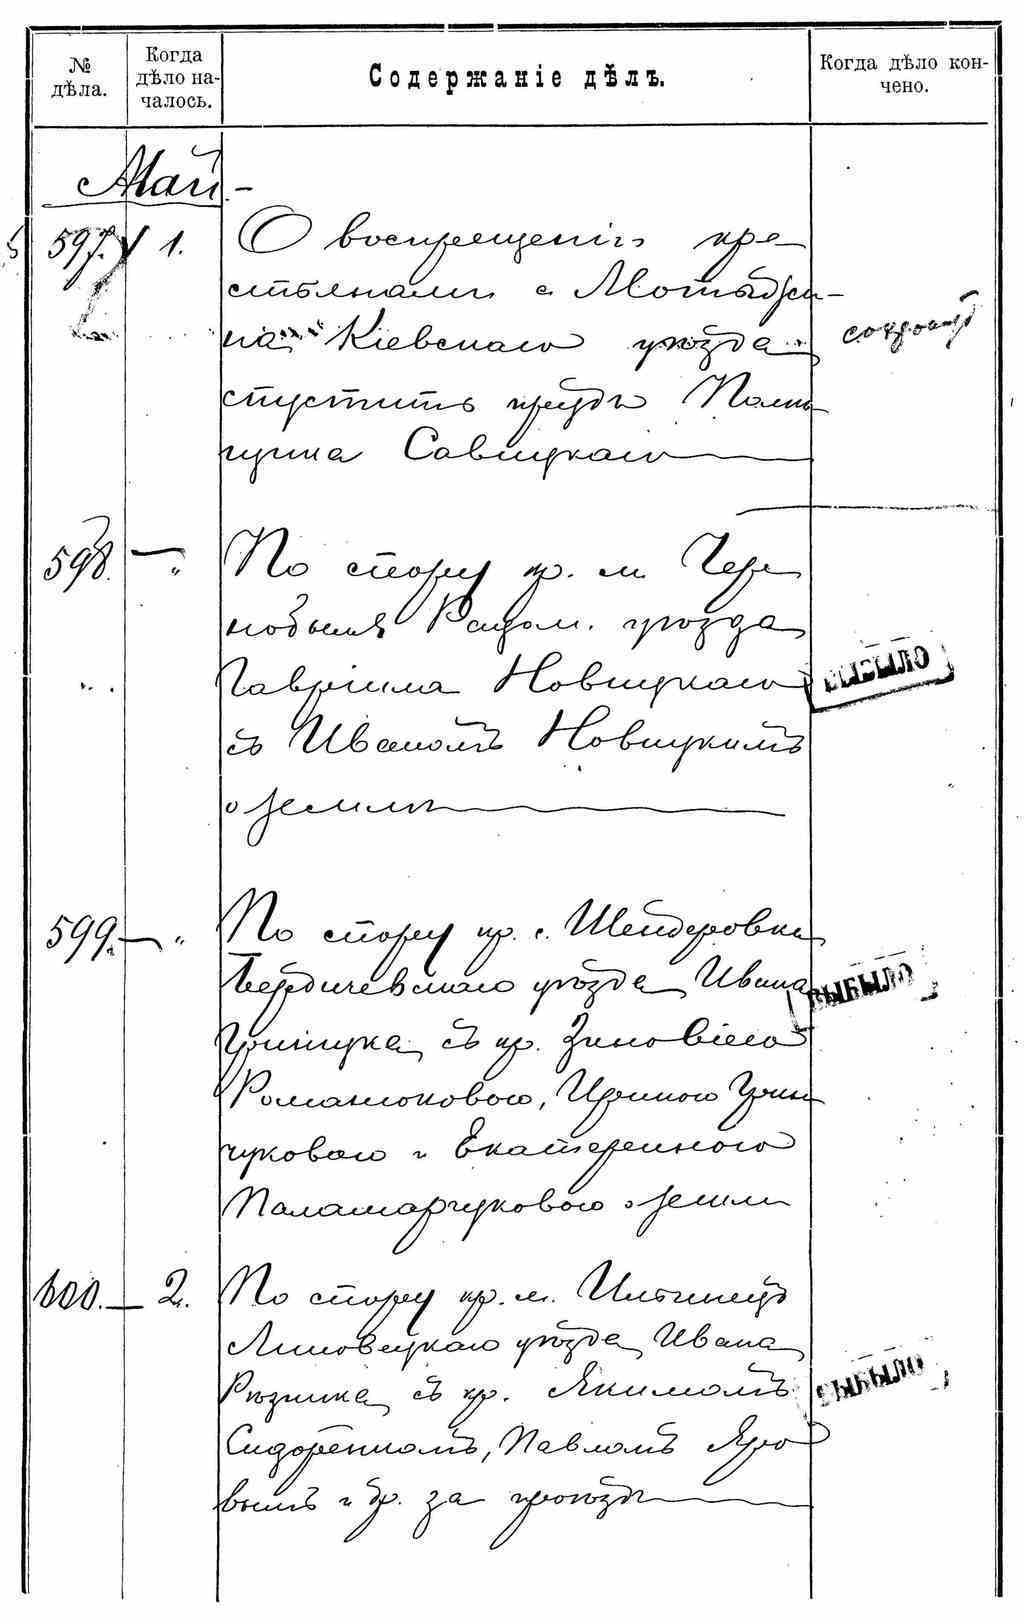 № дѣла.
Когда дѣло на-
чалось.
Содержаніе дѣлъ.
Когда дѣло кон-
чено.
Май
597. 1. О воспрещеніи кре
стьянами с. Мотыжи-
на Кіевскаго уѣзда
спустить прудъ Помѣ
щика Савицкаго
598. — „ По спору кр. м. Чер
нобыля Радом. уѣзда
Гавріила Новицкаго
съ Иваномъ Новицкимъ
о землѣ
ВЫБЫЛО
599. — „ По спору кр. с. Шендеровки
Бердичевскаго уѣзда Ивана
Грищука съ кр. Зиновіею
Романюковою, Ириною Грин
чуковою и Екатериною
Паламарчуковою о земли
ВЫБЫЛО
600. — 2. По спору кр. м. Ильинецъ
Липовецкаго уѣзда Ивана
Рѣзника съ кр. Якимомъ
Сидоренкомъ, Павломъ Яро
вымъ и др. за проѣздъ
ВЫБЫЛО